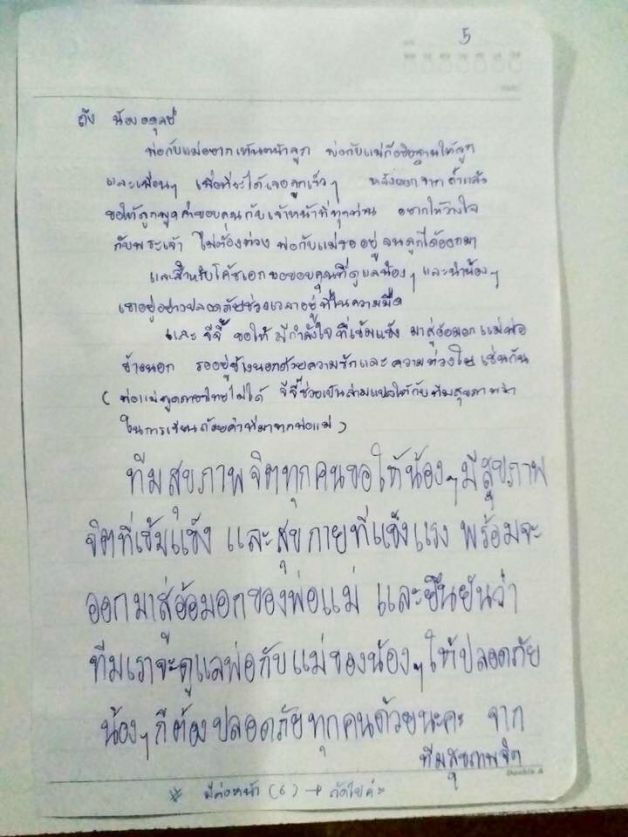 5
ถึง น้องอดุลย์
พ่อกับแม่อยากเห็นหน้าลูก พ่อกับแม่ก็อธิษฐานให้ลูก
และเพื่อนๆ เพื่อที่จะได้เจอลูกเร็วๆ หลังออกจากถ้ำแล้ว
ขอให้ลูกพูดคำขอบคุณกับเจ้าหน้าที่ทุกท่าน อยากให้วางใจ
กับพระเจ้า ไม่ต้องห่วง พ่อกับแม่รออยู่จนลูกได้ออกมา
และสำหรับโค้ชเอกขอขอบคุณที่ดูแลน้องๆ และนำน้องๆ
เขาอยู่อย่างปลอดภัยช่วงเวลาอยู่ที่ในความมืด
และ จีจี้ ขอให้ มีกำลังใจที่เข้มแข็ง มาสู่อ้อมอกแม่พ่อ
ข้างนอก รออยู่ข้างนอกด้วยความรักและความห่วงใย เช่นกัน
( พ่อแม่พูดภาษาไทยไม่ได้ จีจี้ช่วยเป็นล่ามแปลให้กับทีมสุขภาพ
ในการเขียนถ้อยคำที่มาจากพ่อแม่ )
ทีมสุขภาพจิตทุกคนขอให้น้องๆ มีสุขภาพ
จิตที่เข้มแข็ง และสุขกายที่แข็งแรง พร้อมจะ
ออกมาสู่อ้อมอกของพ่อแม่ และยืนยันว่า
ทีมเราจะดูแลพ่อกับแม่ของน้องๆ ให้ปลอดภัย
น้องๆ ก็ต้องปลอดภัยทุกคนด้วยนะคะ จาก
ทีมสุขภาพจิต
* มีต่อหน้า (6) → ถัดไปค่ะ